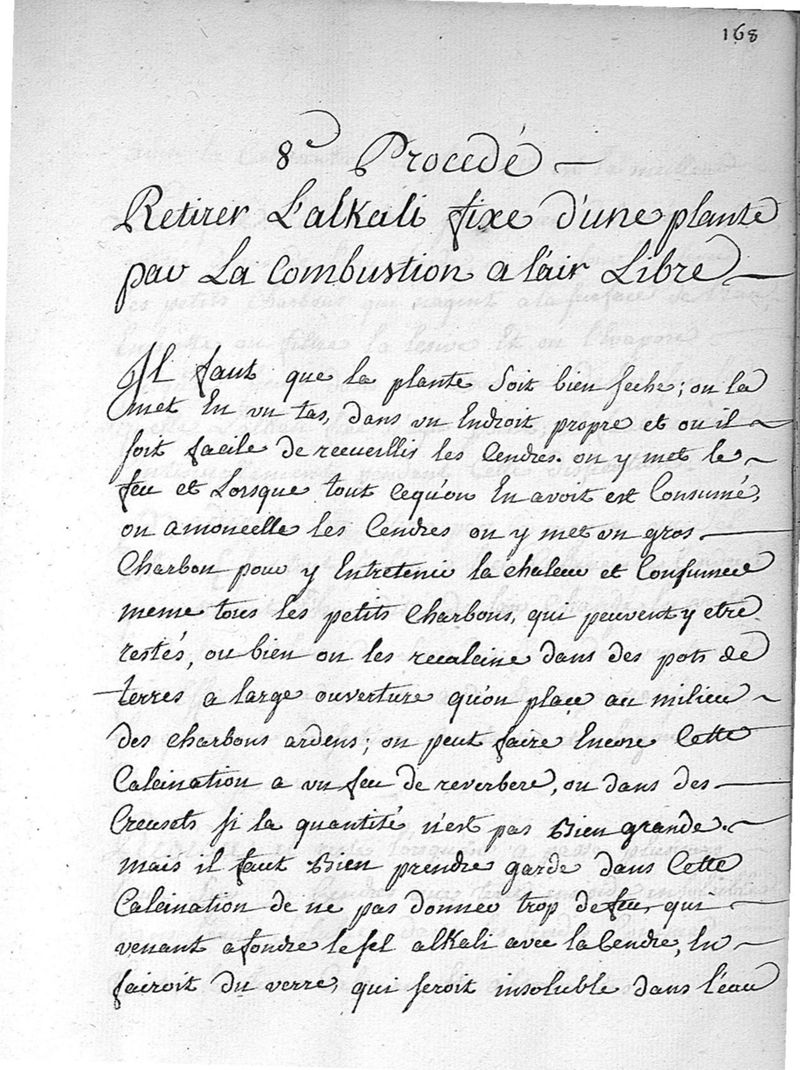 168
8e Procedé
Retirer L'alkali fixe d'une plante
par La Combustion a l'air Libre
Il faut que la plante soit bien seche; on la
met En un tas, dans un Endroit propre et ou il
soit facile de recueillir les Cendres. on y met le
feu et Lorsque tout cequ'on En avoit est Consumé,
on amoncelle les Cendres on y met un gros
Charbon pour y Entretenir la chaleur et Consumer
meme tous les petits Charbons, qui peuvent y etre
restés, ou bien on les recalcine dans des pots de
terres a large ouverture qu'on place au milieu
des charbons ardens; on peut faire Encore Cette
Calcination a un feu de reverbere, ou dans des
Creusets si la quantité n'est pas Bien grande.
mais il faut Bien prendre garde dans Cette
Calcination de ne pas donner trop de feu, qui
venant afondre le sel alkali avec la Cendre, En
fairoit du verre, qui seroit insoluble dans l'eau